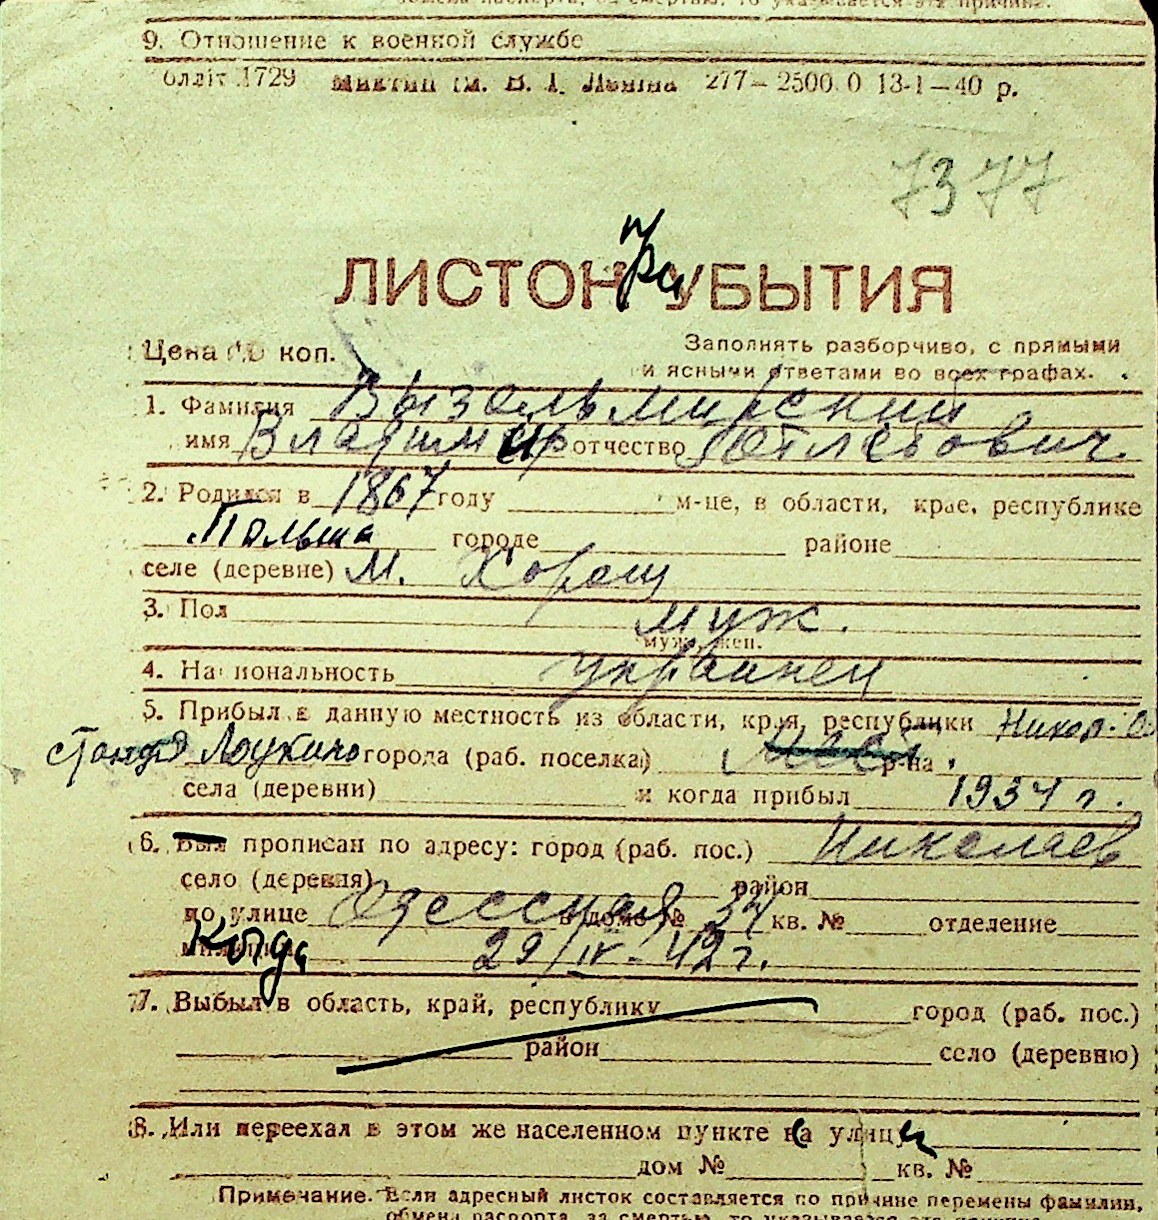 обмена паспорта, за смертью, то указывается эта причина.
9. Отношение к военной службе
1729 им. В. І. Леніна 277—2500.0 13-1—40 р.
7377
ЛИСТОК при УБЫТИЯ
Цена коп.
Заполнять разборчиво, с прямыми
и ясными ответами во всех графах.
1. Фамилия Вызельмирский
имя Владимир отчество
2. Родился в 1867 году м-це, в области, крае, республике
Польша городе районе
селе (деревне) М. Хорощ
3. Пол муж.
муж., жен.
4. Национальность украинец
5. Прибыл в данную местность из области, края, республики Никол. О
города (раб. поселка) р-на
села (деревни) и когда прибыл 1934 г.
6. Был прописан по адресу: город (раб. пос.) Николаев
село (деревня) район
по улице Одесская в доме № 34 кв. № отделение
милиции когда 29/IV-42 г.
7. Выбыл в область, край, республику город (раб. пос.)
район село (деревню)
8. Или переехал в этом же населенном пункте с улицы
дом № кв. №
Примечание. Если адресный листок составляется по причине перемены фамилии,
обмена паспорта, за смертью, то указывается эта причина.